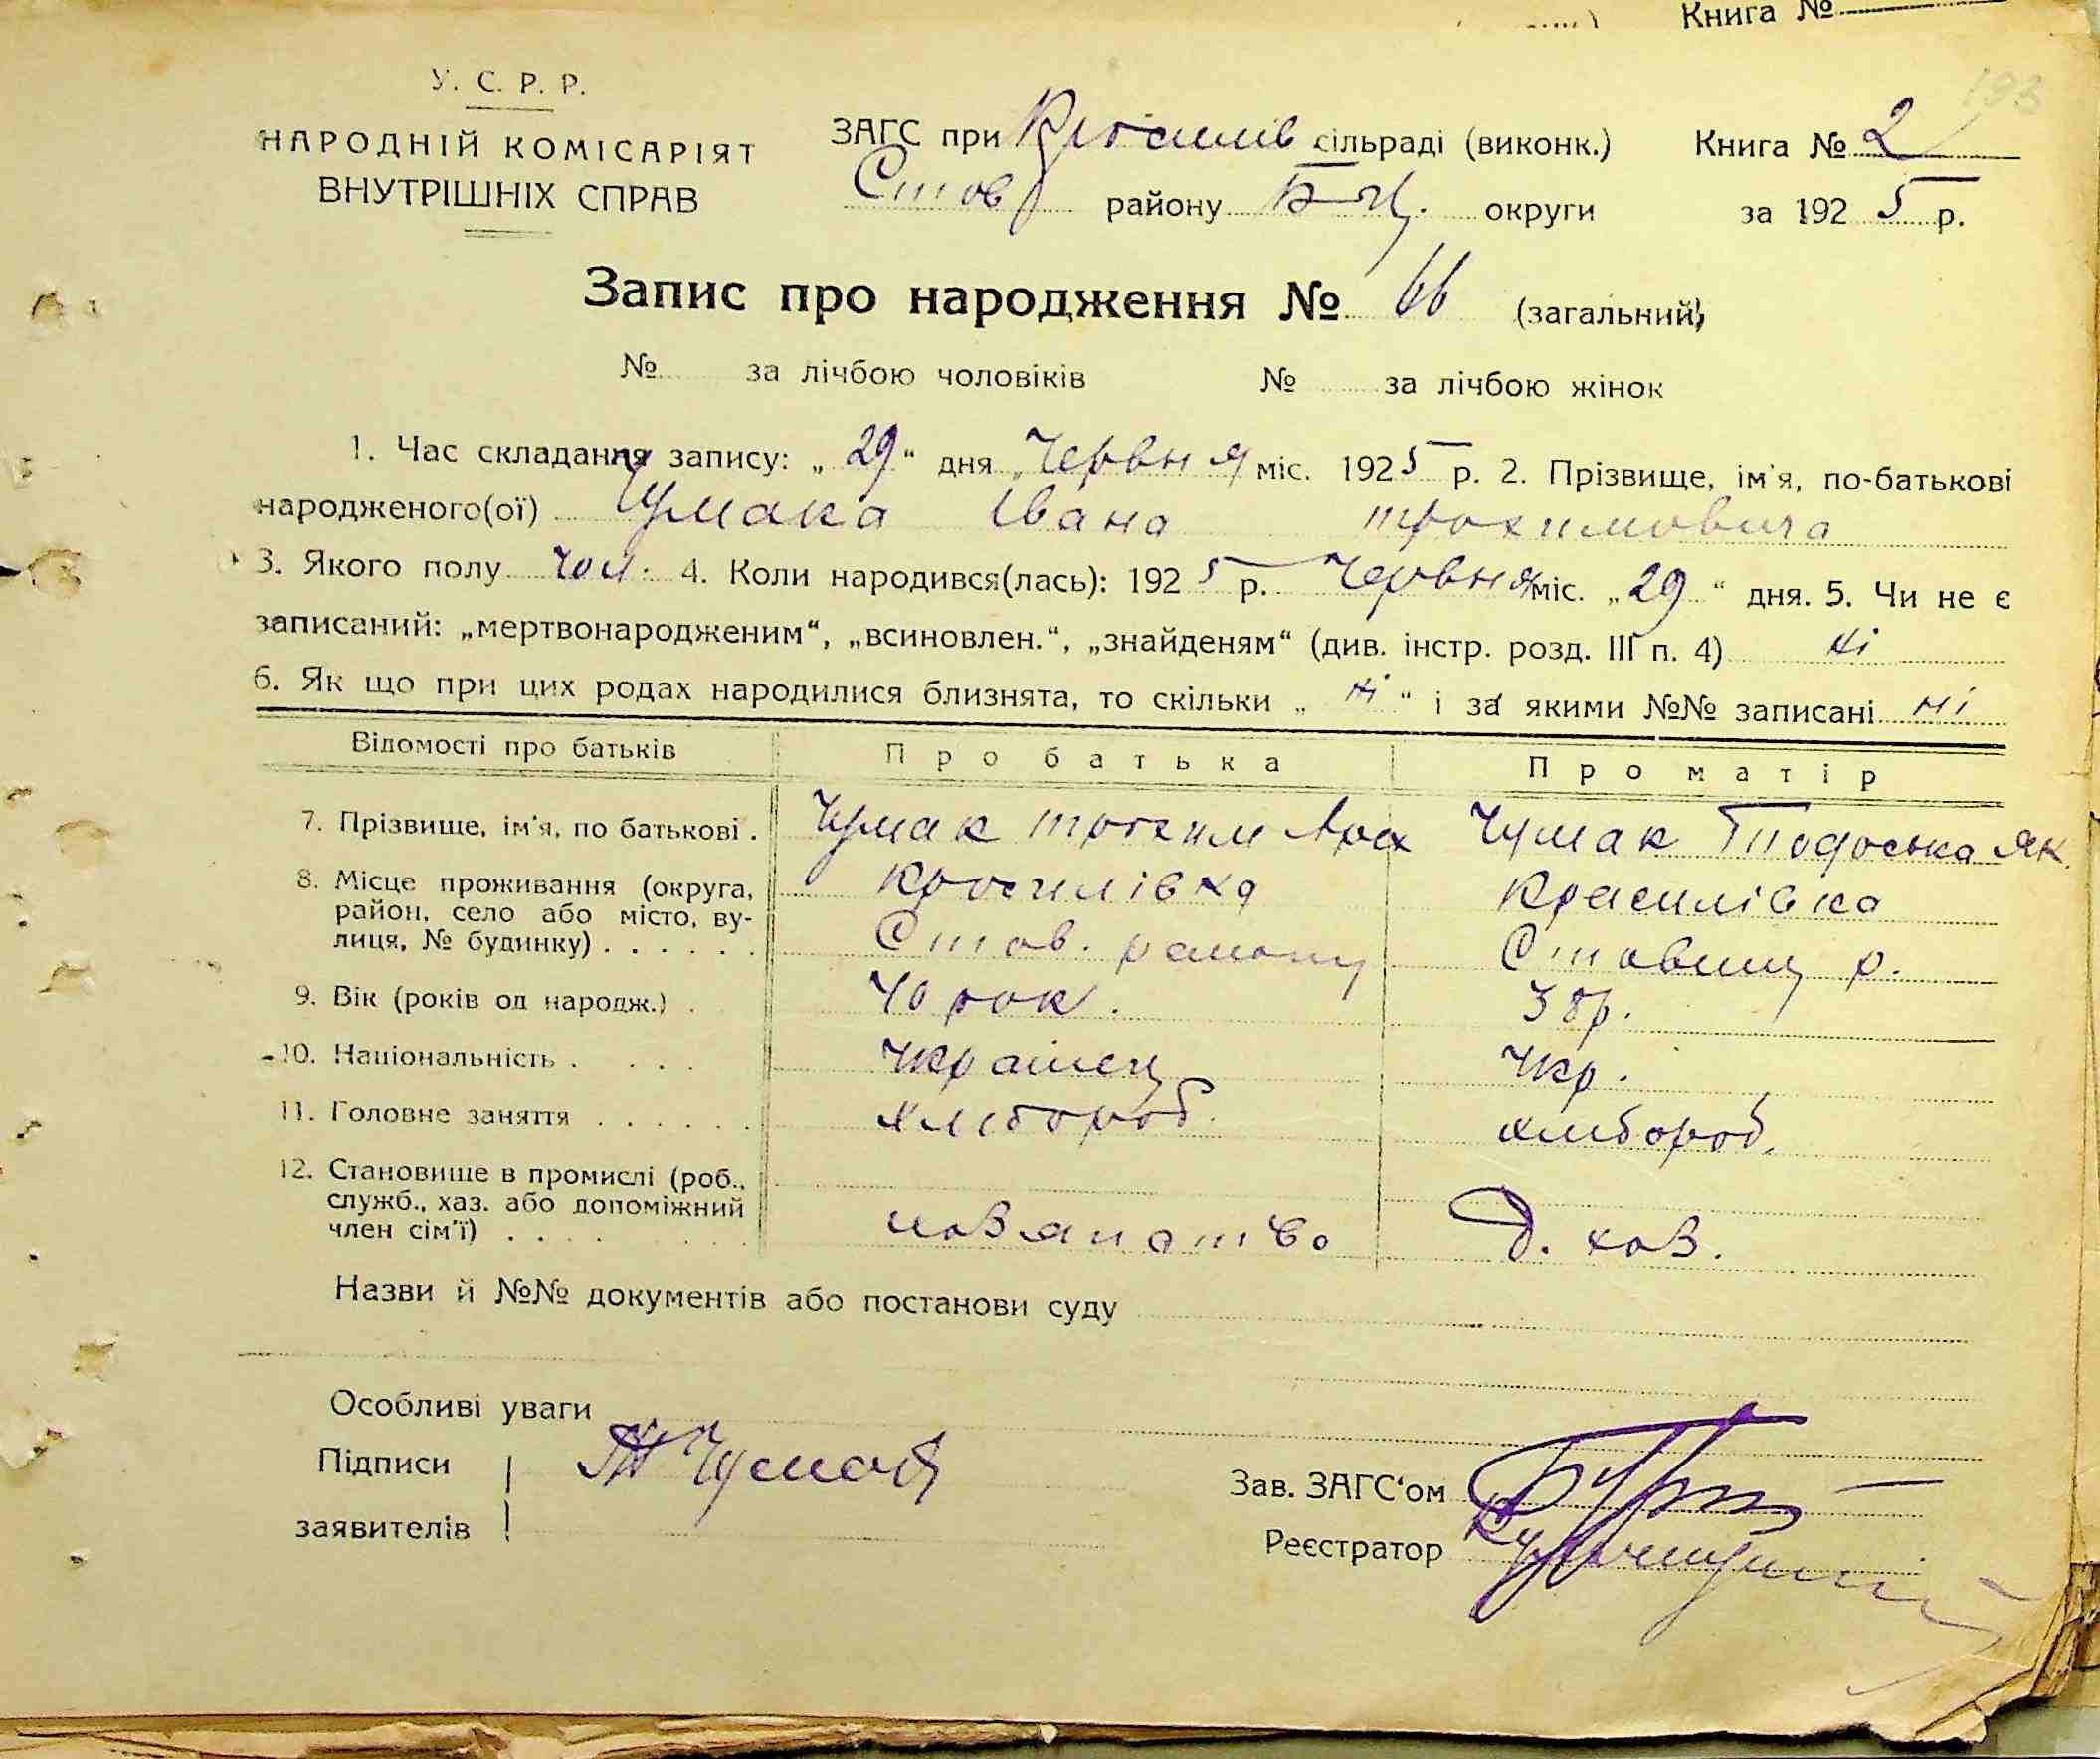 Книга №
193
У. С. Р. Р.
НАРОДНІЙ КОМІСАРІЯТ
ВНУТРІШНІХ СПРАВ
ЗАГС при Красилів сільраді (виконк.) Книга № 2
Став району Б-Ц. округи за 1925 р.
Запис про народження № 66 (загальний)
№ за лічбою чоловіків № за лічбою жінок
1. Час складання запису: „29“ дня Червня міс. 1925 р. 2. Прізвище, ім'я, по-батькові
народженого(ої) Чумака Івана трохимовича
3. Якого полу чол. 4. Коли народився(лась): 1925 р. Червня міс. „29“ дня. 5. Чи не є
записаний: „мертвонародженим“, „всиновлен.“, „знайденям“ (див. інстр. розд. III п. 4) ні
6. Як що при цих родах народилися близнята, то скільки „ні“ і за якими №№ записані ні
Відомості про батьків Про батька Про матір
7. Прізвище, ім'я, по батькові . Чумак трохим Чумак Тодоська Як.
8. Місце проживання (округа, Красилівка Красилівка
район, село або місто, ву-
лиця, № будинку) . . . . . . Став. району Ставищ р.
9. Вік (років од народж.) . 40 рок. 38р.
10. Національність . . . . українец укр.
11. Головне заняття . . . . . . хлібороб хлібороб.
12. Становище в промислі (роб.,
служб., хаз. або допоміжний
член сім'ї) . . . . Д. хоз.
Назви й №№ документів або постанови суду
Особливі уваги
Підписи Т Чумак
заявителів
Зав. ЗАГС'ом
Реєстратор